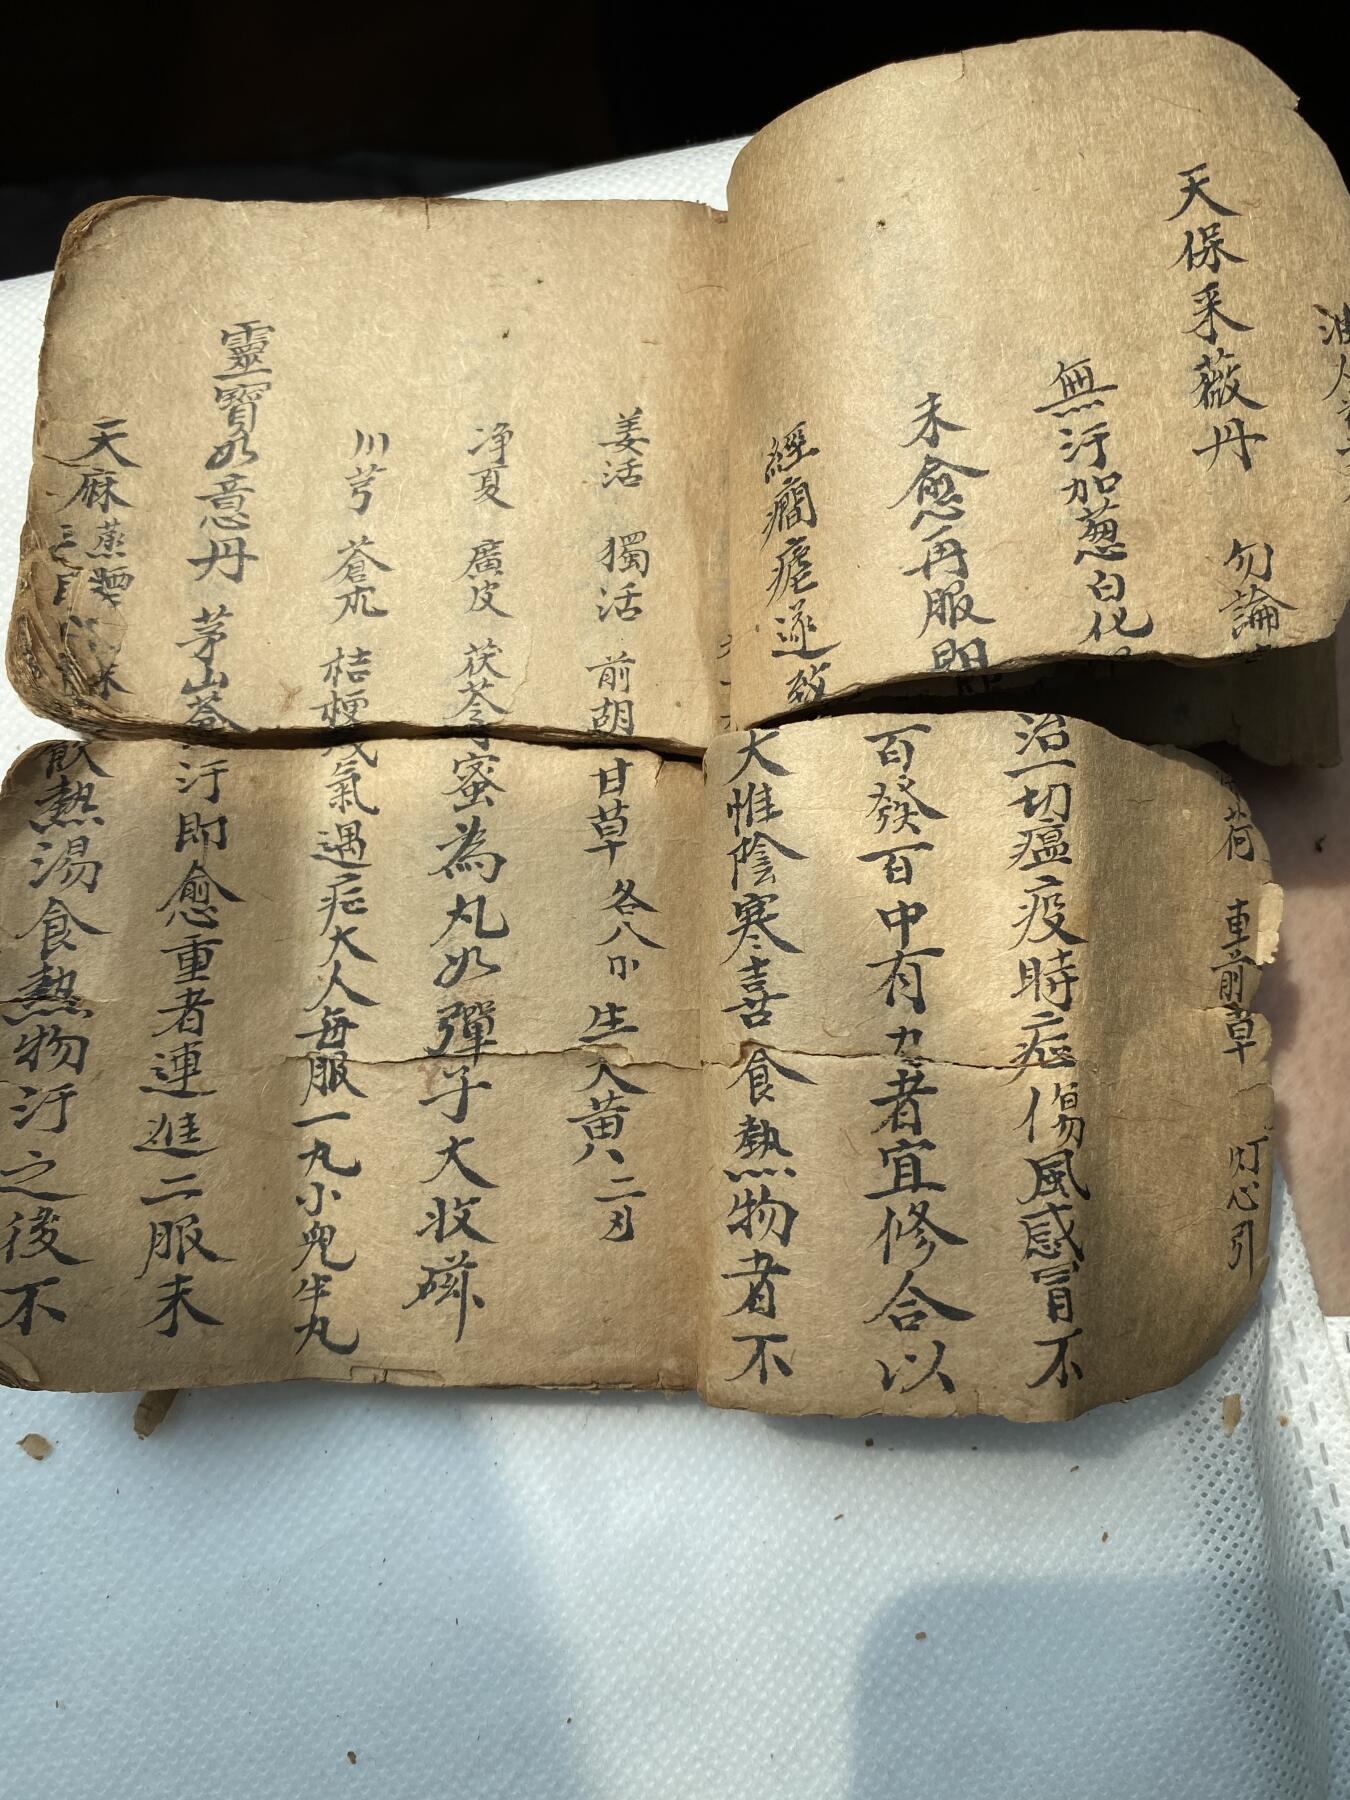 荷 車前草 灯心引
天保采薇丹 勿論
治一切瘟疫時症傷風感冒不
無汗加葱白化
百發百中有力者宜修合以
未愈再服即
大惟陰寒喜食熱物者不
經癇瘧遂致
姜活 獨活 前胡 甘草 各八卩 生大黄八二刄
净夏 廣皮 茯苓 蜜為丸如彈子大收磁
川芎 蒼朮 桔梗 氣遇症大人每服一丸小兒半丸
靈寶如意丹 茅山蒼
汗即愈重者連進二服未
天麻 蒸麵
飲熱湯食熱物汗之後不